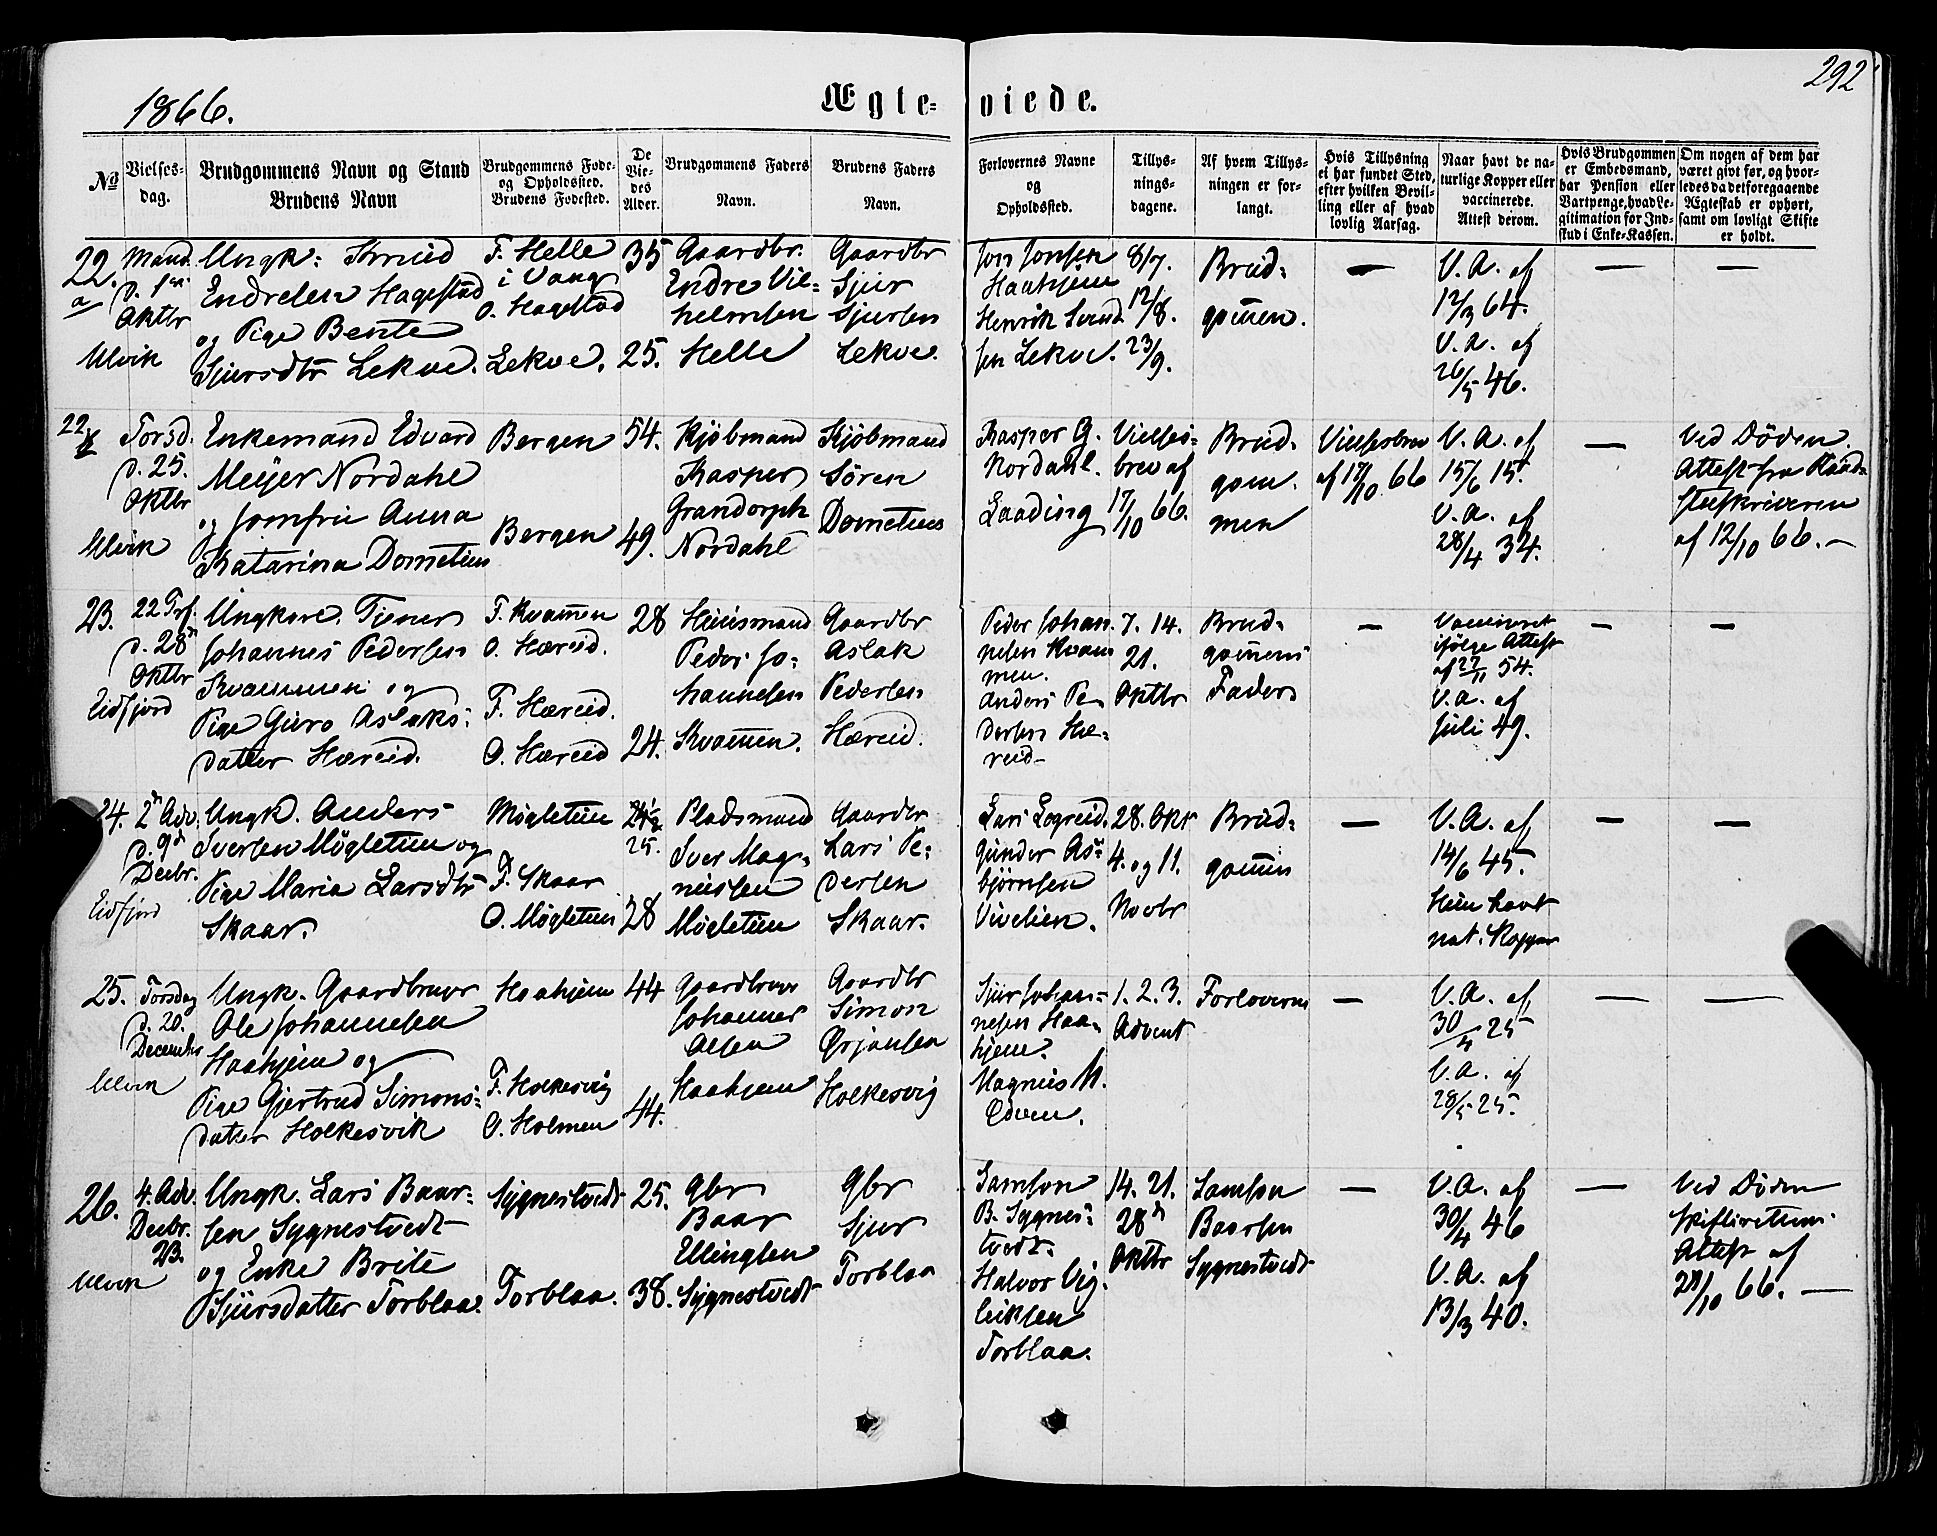 1866.
Ægte-
viede.
292
No
Vielses-
dag.
Brudgommens Navn og Stand
Brudens Navn
Brudgommens Føde-
og Opholdssted.
Brudens Fødested.
De
Vie-
des
Alder.
Brudgommens Faders
Navn.
Brudens Faders
Navn.
Forlovernes Navne
og
Opholdssted.
Tillys-
nings-
dagene.
Af hvem Tillys-
ningen er for-
langt.
Hvis Tillysning
ei har fundet Sted,
efter hvilken Bevil-
ling eller af hvad
lovlig Aarsag.
Naar havt de na-
turlige Kopper eller
vaccinerede.
Attest derom.
Hvis Brudgommen
er Embedsmand,
har Pension eller
Vartpenge, hvad Le-
gitimation for Ind-
skud i Enke-Kassen.
Om nogen af dem har
været givt før, og hvor-
ledes da det foregaaende
Ægteskab er ophørt,
samt om lovligt Skifte
er holdt.
22.
a
Mand.
d. 1ste
Oktbr
Ulvik
Ungk:
Endresen Hagestad
og Pige Bente
Sjursdtr Lekve.
F. Helle
i Vang
O. Hagestad
Lekve.
35
25.
Gaardbr.
Endre Vil=
helmsen
Helle
Gaardbr
Sjur
Sjursen
Lekve.
Jon Jonsen
Haahjem
Henrik Svend
sen Lekve.
8/7.
12/8.
23/9.
Brud=
gommen.
—
V. A. af
12/3 64.
V. A. af
26/5 46.
—
—
22
b
Torsd.
d. 25.
Oktbr
Ulvik
Enkemand Edvard
Meijer Nordahl
og Jomfru Anna
Katarina Dometius
Bergen
Bergen
54.
49.
Kjøbmand
Kasper
Grandorph
Nordahl
Kjøbmand
Søren
Dometius
Kasper G.
Nordahl.
Laading
Vielses=
brev af
17/10 66.
Brud=
gom=
men
Vielsesbrev
af 17/10 66
V. A. af
15/6 15.
V. A. af
28/4 34.
—
Ved Døden.
Attest fra Raad=
stuskriveren
af 12/10 66.—
23.
22 Trf.
d. 28de
Oktbr
Eidfjord
Ungkarl Tjener
Johannes Pedersen
Kvammen og
Pige Guro Aslaks=
datter Hæreid.
F. Kvammen
O. Hæreid.
F. Hæreid.
O. Hæreid
28
24.
Huusmand
Peder Jo=
hannesen
Kvammen.
Gaardbr
Aslak
Pedersen
Hæreid.
Peder Johan
nesen Kvam
men.
Anders Pe
dersen Hæ=
reid—
7. 14.
21.
Oktbr
Brud=
gommens
Fader
—
Vaccineret
ifølge Attest
af 27/11 54.
V. A. af
Juli 49.
—
—
24.
2den Adv.
d. 9de
Decbr.
Eidfjord
Ungk. Anders
Iversen Møgletun og
Pige Maria Larsdtr
Skaar.
Møgletun
F. Skaar
O. Møgletun
25.
28
Pladsmand
Iver Mag=
nussen
Møgletun
Gaardbr
Lars Pe=
dersen
Skaar.
Lars Legreid.
Gunder As=
bjørnsen
Vivelien.
28. Okt
4. og 11.
Novbr
Brud=
gommen
—
V. A. af
14/6 45.
Hun havt
nat. Kopper
—
—
25.
Torsdag
d. 20.
December
Ulvik
Ungk. Gaardbruger
Ole Johannesen
Haahjem og
Pige Gjertrud Simons=
datter Holkesvik
Haahjem
F. Holkesvig
O. Holmen
44
44.
Gaardbruger
Johannes
Olsen
Haahjem
Gaardbr
Simon
Ørjansen
Holkesvig
Sjur Johan=
nesen Haa=
hjem.
Magnus M.
Edven.
1. 2. 3.
Advent
Forloverne
—
V. A. af
30/4 25
V. A. af
28/5 25.
—
—
26.
4. Adv.
Decbr.
23.
Ulvik
Ungk. Lars Baar=
sen Sygnestvedt
og Enke Brite
Sjursdatter Torblaa.
Sygnestvedt
Torblaa.
25.
38.
Gbr
Baar
Ellingsen
Sygnestvedt
Gbr
Sjur
Torblaa
Samson
B. Sygnes=
tvedt.
Halvor Vig
leiksen
Torblaa.
14. 21.
28de
Oktbr
Samson
Baarsen
Sygnestvedt
—
V. A. af
30/4 46
V. A. af
13/3 40.
—
Ved Døden
Skifterettens
Attest af
28/10 66. —